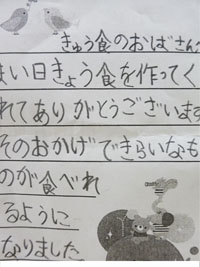 きゅう食のおばさんが
まい日きょう食を作ってく
れてありがとうございます
そのおかげできらいなも
のが食べれ
るように
なりました